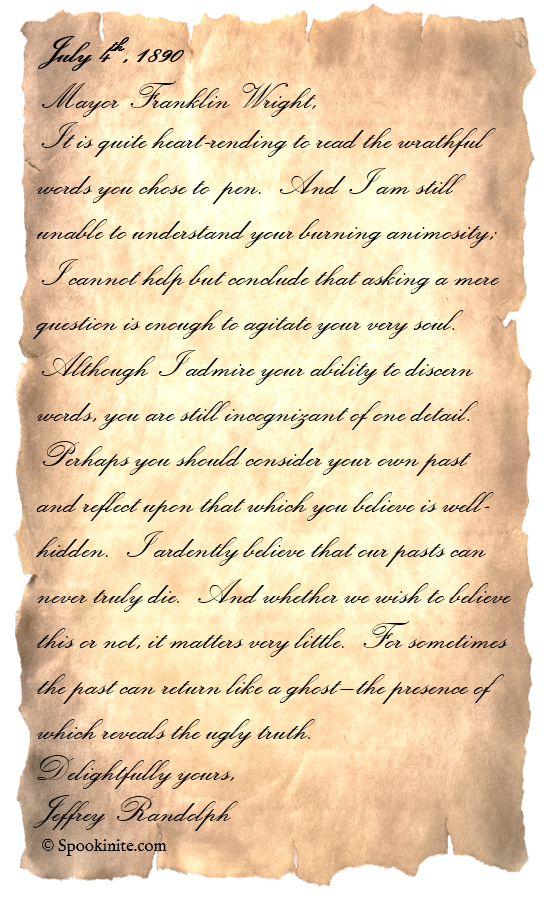 July 4th, 1890
Mayor Franklin Wright,
It is quite heart-rending to read the wrathful
words you chose to pen. And I am still
unable to understand your burning animosity;
I cannot help but conclude that asking a mere
question is enough to agitate your very soul.
Although I admire your ability to discern
words, you are still incognizant of one detail.
Perhaps you should consider your own past
and reflect upon that which you believe is well-
hidden. I ardently believe that our pasts can
never truly die. And whether we wish to believe
this or not, it matters very little. For sometimes
the past can return like a ghost—the presence of
which reveals the ugly truth.
Delightfully yours,
Jeffrey Randolph
© Spookinite.com